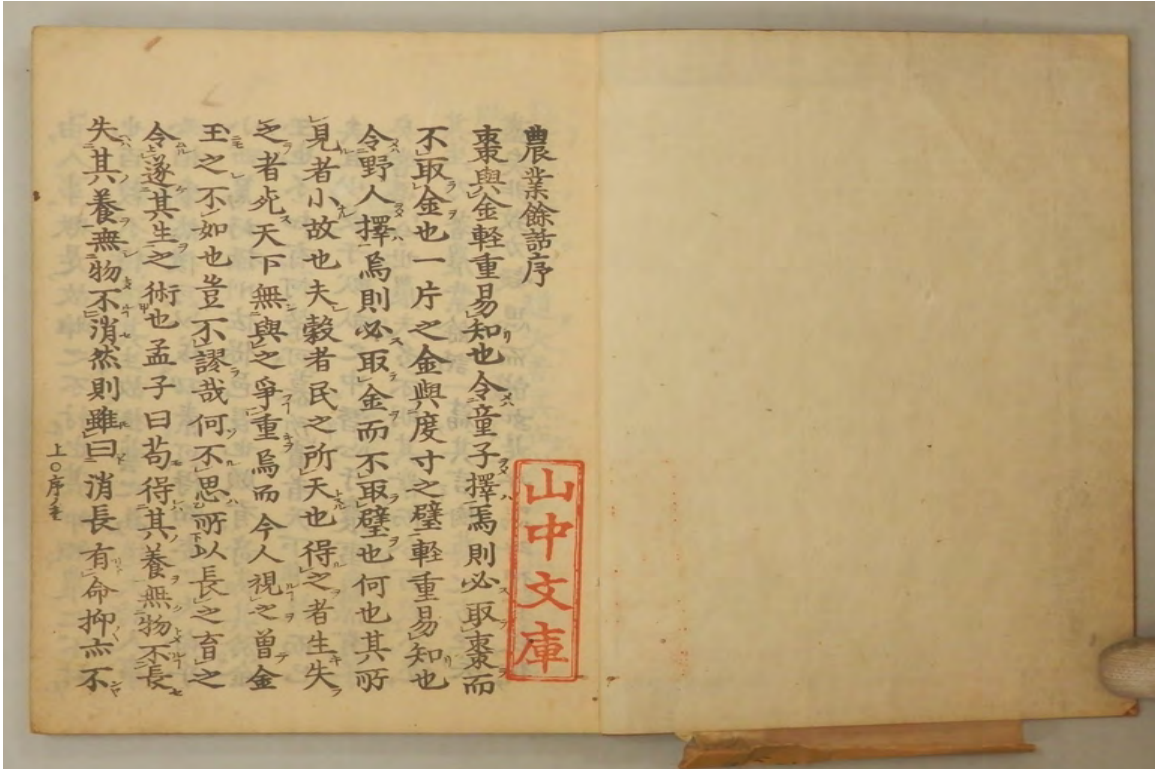 農業餘話序
棗與金軽重易知也令童子擇焉則必取棗而
不取金也一片之金與度寸之璧軽重易知也
令野人擇焉則必取金而不取璧也何也其所
見者小故也夫穀者民之所天也得之者生失
之者死天下無與之爭重焉而今人視之曽金
玉之不如也豈不謬哉何不思所以長之育之
令遂其生之術也孟子曰苟得其養無物不長
失其養無物不消然則雖曰消長有命抑亦不
上〇序ノ壱
山中文庫